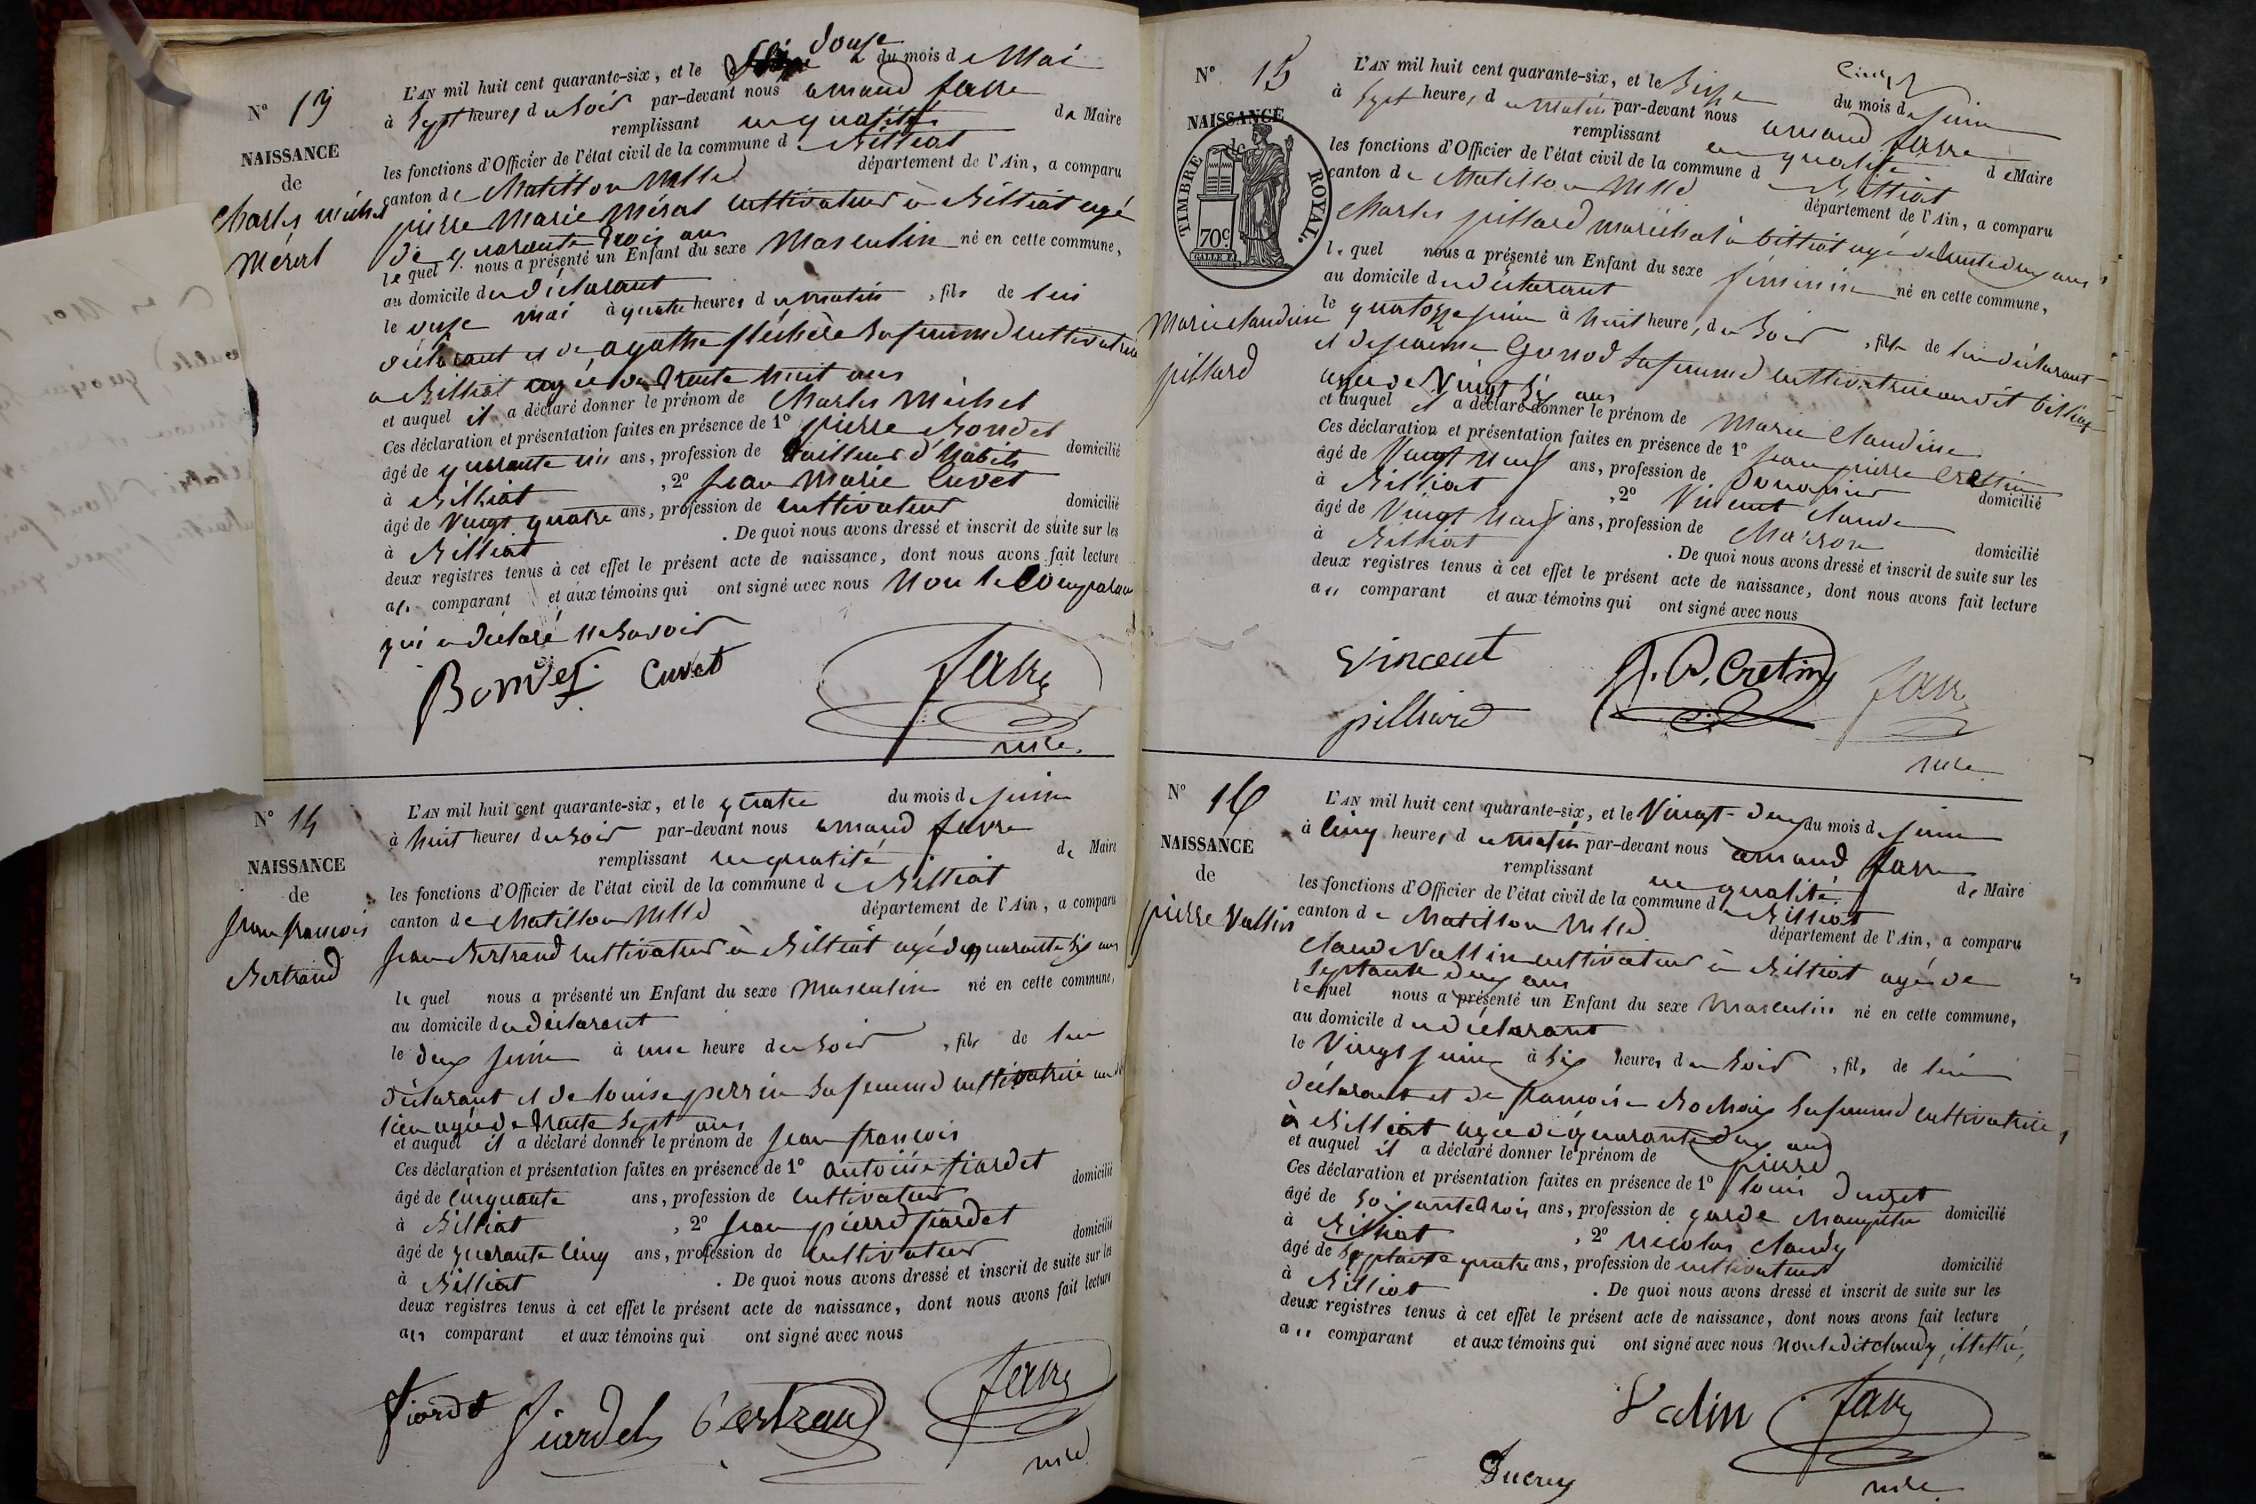 N° 13
NAISSANCE
de
Charles michel
Méral
L'AN mil huit cent quarante-six, et le douse du mois de Mai
à Sept heures du Soir par-devant nous amand favre
remplissant en qualité de Maire
les fonctions d'Officier de l'état civil de la commune de Billiat
canton de Chatillon département de l'Ain, a comparu
pierre Marie Méral cultivateur à Billiat agé
de quarante trois ans
lequel nous a présenté un Enfant du sexe Masculin né en cette commune,
au domicile du déclarant
le onse mai à quatre heures du matin, fils de lui
déclarant et de agathe fléchère sa femme cultivatrice
a Billiat agée de trente huit ans
et auquel il a déclaré donner le prénom de Charles Michel
Ces déclaration et présentation faites en présence de 1° pierre Bondet
âgé de quarante un ans, profession de tailleur d'habits domicilié
à Billiat, 2° Jean Marie Cuvet
âgé de Vingt quatre ans, profession de cultivateur domicilié
à Billiat. De quoi nous avons dressé et inscrit de suite sur les
deux registres tenus à cet effet le présent acte de naissance, dont nous avons fait lecture
au comparant et aux témoins qui ont signé avec nous Non le Comparant
qui a déclaré ne Savoir
Cuvet favre
N° 14
NAISSANCE
de
Jean francois
Bertrand
L'AN mil huit cent quarante-six, et le quatre du mois de juin
à huit heures du soir par-devant nous amand favre
remplissant en qualité de Maire
les fonctions d'Officier de l'état civil de la commune de Billiat
canton de Chatillon département de l'Ain, a comparu
Jean Bertrand cultivateur à Billiat agé de quarante six ans
lequel nous a présenté un Enfant du sexe Masculin né en cette commune,
au domicile du déclarant
le deux juin à une heure du soir, fils de lui
déclarant et de louise perrin sa femme cultivatrice au dit
lieu agée de trente sept ans
et auquel il a déclaré donner le prénom de Jean francois
Ces déclaration et présentation faites en présence de 1° antoine fiardet
âgé de cinquante ans, profession de cultivateur domicilié
à Billiat, 2° Jean pierre fiardet
âgé de quarante cinq ans, profession de cultivateur domicilié
à Billiat. De quoi nous avons dressé et inscrit de suite sur les
deux registres tenus à cet effet le présent acte de naissance, dont nous avons fait lecture
au comparant et aux témoins qui ont signé avec nous
fiardet fiardet bertrand favre
N° 15
NAISSANCE
de
TIMBRE ROYAL.
70c.
Marie claudine
pillard
L'AN mil huit cent quarante-six, et le Seize du mois de juin
à Sept heures du matin par-devant nous amand favre
remplissant en qualité de Maire
les fonctions d'Officier de l'état civil de la commune de Billiat
canton de Chatillon département de l'Ain, a comparu
Charles pillard maréchal à billiat agé de trente deux ans
lequel nous a présenté un Enfant du sexe féminin né en cette commune,
au domicile du déclarant
le quatorze juin à huit heures du Soir, fille de lui déclarant
et de jeanne Gonod sa femme cultivatrice au dit billiat
agée de Vingt six ans
et auquel il a déclaré donner le prénom de Marie Claudine
Ces déclaration et présentation faites en présence de 1° jean pierre Crettin
âgé de Vingt neuf ans, profession de Douanier domicilié
à Billiat, 2° Vincent claude
âgé de Vingt neuf ans, profession de Masson domicilié
à Billiat. De quoi nous avons dressé et inscrit de suite sur les
deux registres tenus à cet effet le présent acte de naissance, dont nous avons fait lecture
au comparant et aux témoins qui ont signé avec nous
Vincent J. P. Cretin favre
pilliard
N° 16
NAISSANCE
de
pierre Vallin
L'AN mil huit cent quarante-six, et le Vingt-deux du mois de juin
à cinq heures du matin par-devant nous amand favre
remplissant en qualité de Maire
les fonctions d'Officier de l'état civil de la commune de Billiat
canton de Chatillon département de l'Ain, a comparu
Claude Vallin cultivateur à Billiat agé de
septante deux ans
lequel nous a présenté un Enfant du sexe Masculin né en cette commune,
au domicile du déclarant
le Vingt juin à six heures du soir, fils de lui
déclarant et de francoise Rochaix sa femme cultivatrice
à Billiat agée de quarante deux ans
et auquel il a déclaré donner le prénom de pierre
Ces déclaration et présentation faites en présence de 1° louis Ducret
âgé de soixante trois ans, profession de garde champêtre domicilié
à Billiat, 2° nicolas claudy
âgé de septante quatre ans, profession de cultivateur domicilié
à Billiat. De quoi nous avons dressé et inscrit de suite sur les
deux registres tenus à cet effet le présent acte de naissance, dont nous avons fait lecture
au comparant et aux témoins qui ont signé avec nous Non le dit claudy, illettré,
Valin favre
Ducrey